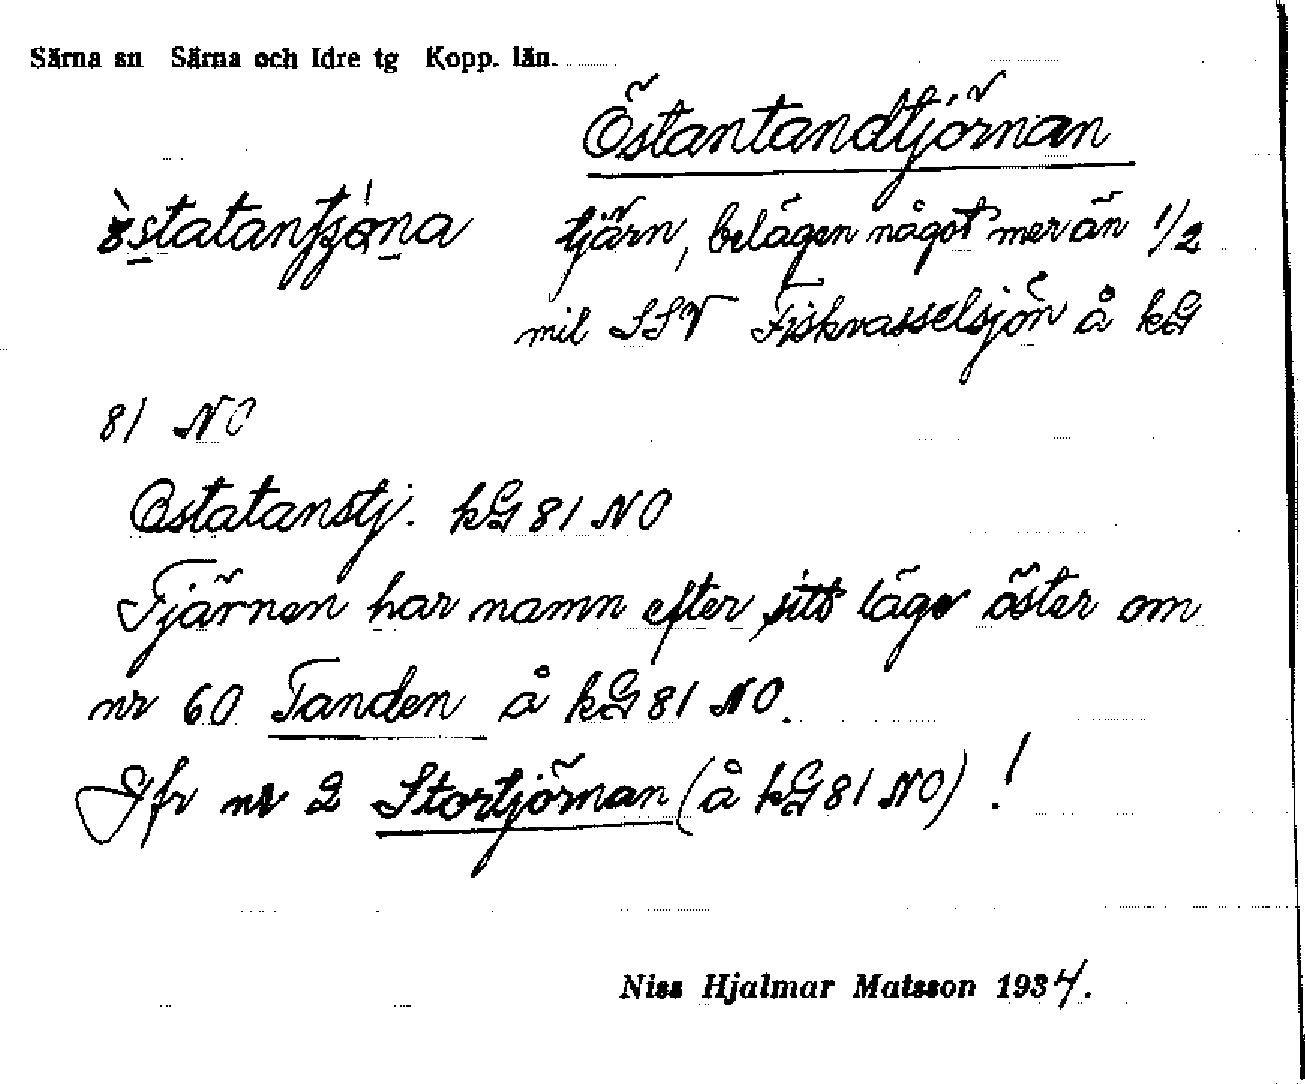 Särna sn Särna och Idre tg Kopp. län.
Östantandtjörnan
tjärn, belägen något mer än 1/2
mil SSV Fiskvasselsjön å kG
81 NO
Östatanstj. kG 81 NO
Tjärnen har namn efter sitt läge öster om
nr 60 Tanden å kG 81 NO.
Jfr nr 2 Stortjörnan (å kG 81 NO)!
Niss Hjalmar Matsson 1934.